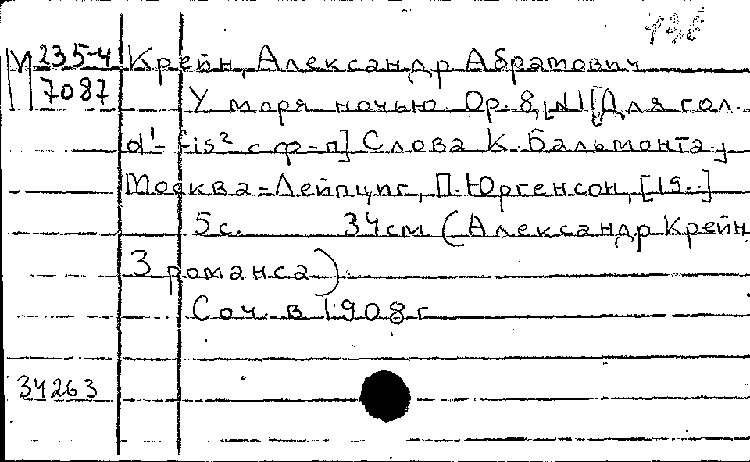 М 235-4 Крейн, Александр Абрамович
7087 У моря ночью Op. 8, N1 [Для гол.
d¹- fis² с ф-п] Слова К. Бальмонта,
Москва-Лейпциг, П. Юргенсон, [19..]
5с. 34см (Александр Крейн
3 романса)
Соч. в 1908 г
34263